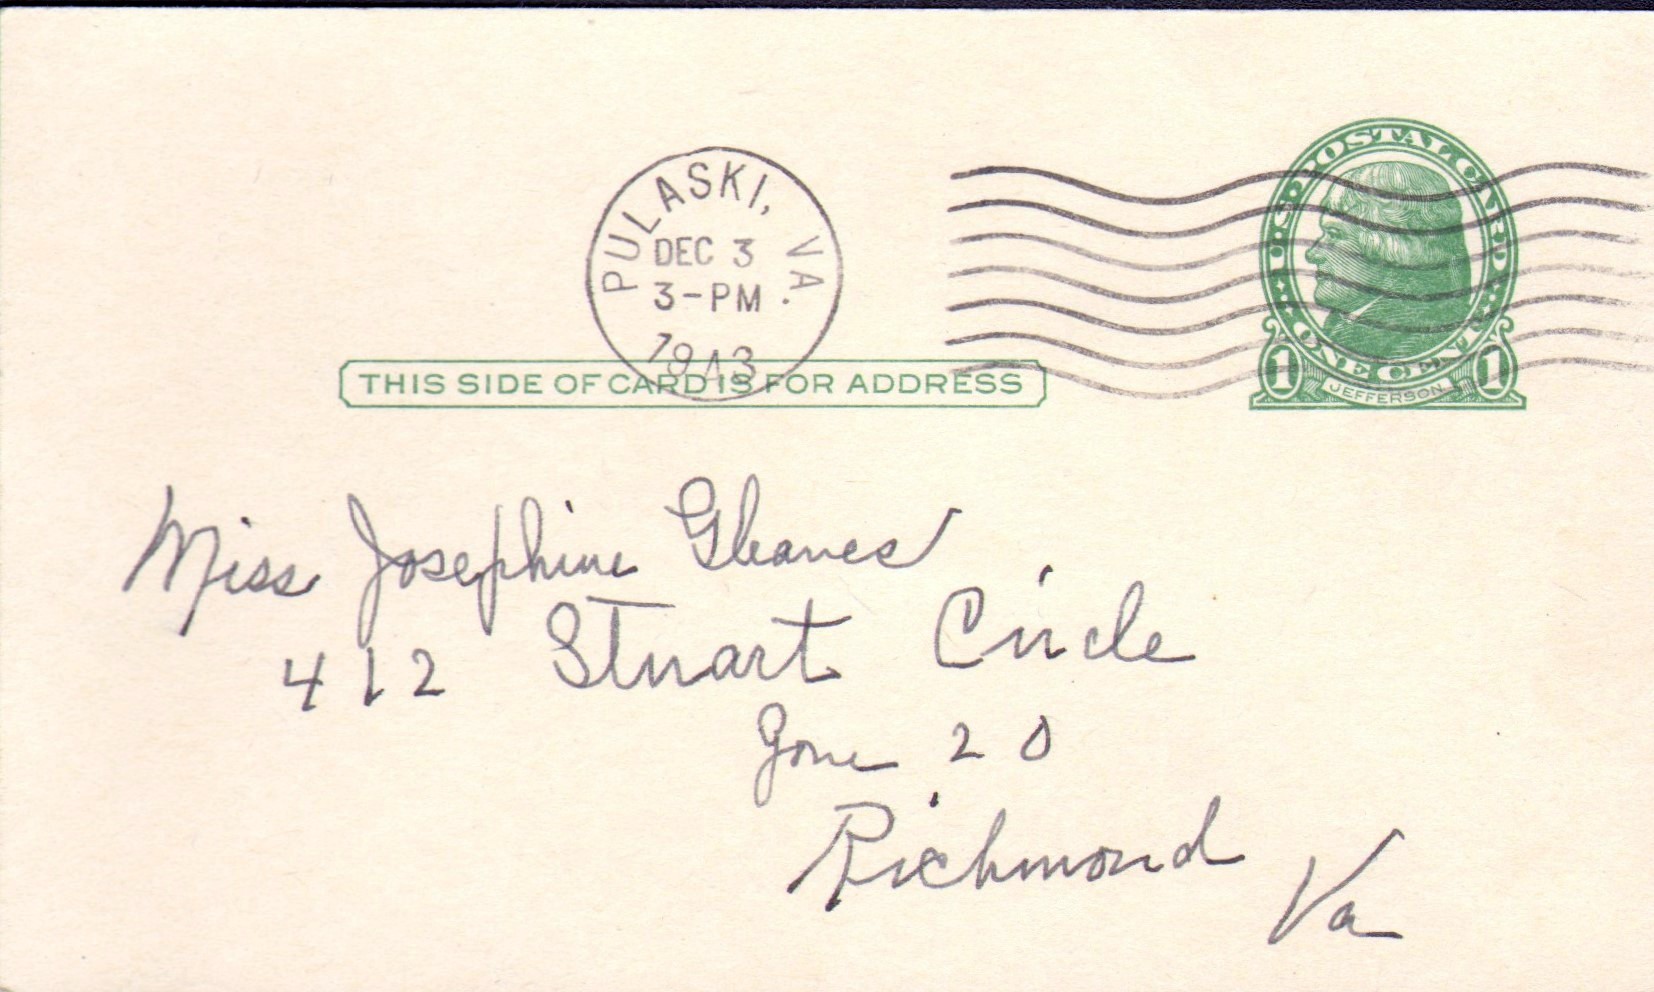 PULASKI, VA.
DEC 3
3-PM
1943
U·S·POSTAL CARD
ONE CENT
1 JEFFERSON 1
THIS SIDE OF CARD IS FOR ADDRESS
Miss Josephine Gleaves
412 Stuart Circle
Zone 20
Richmond
Va